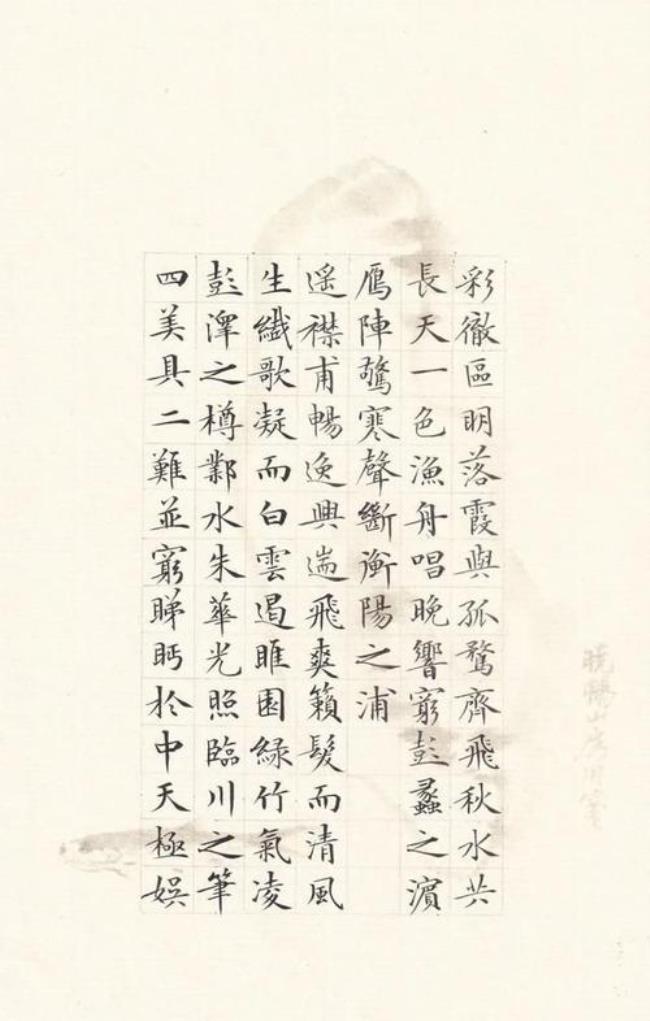 彩徹區明落霞與孤鶩齊飛秋水共
長天一色漁舟唱晚響窮彭蠡之濱
鴈陣驚寒聲斷衡陽之浦
遥襟甫暢逸興遄飛爽籟發而清風
生纖歌凝而白雲遏睢園綠竹氣凌
彭澤之樽鄴水朱華光照臨川之筆
四美具二難並窮睇眄於中天極娱
山房用箋